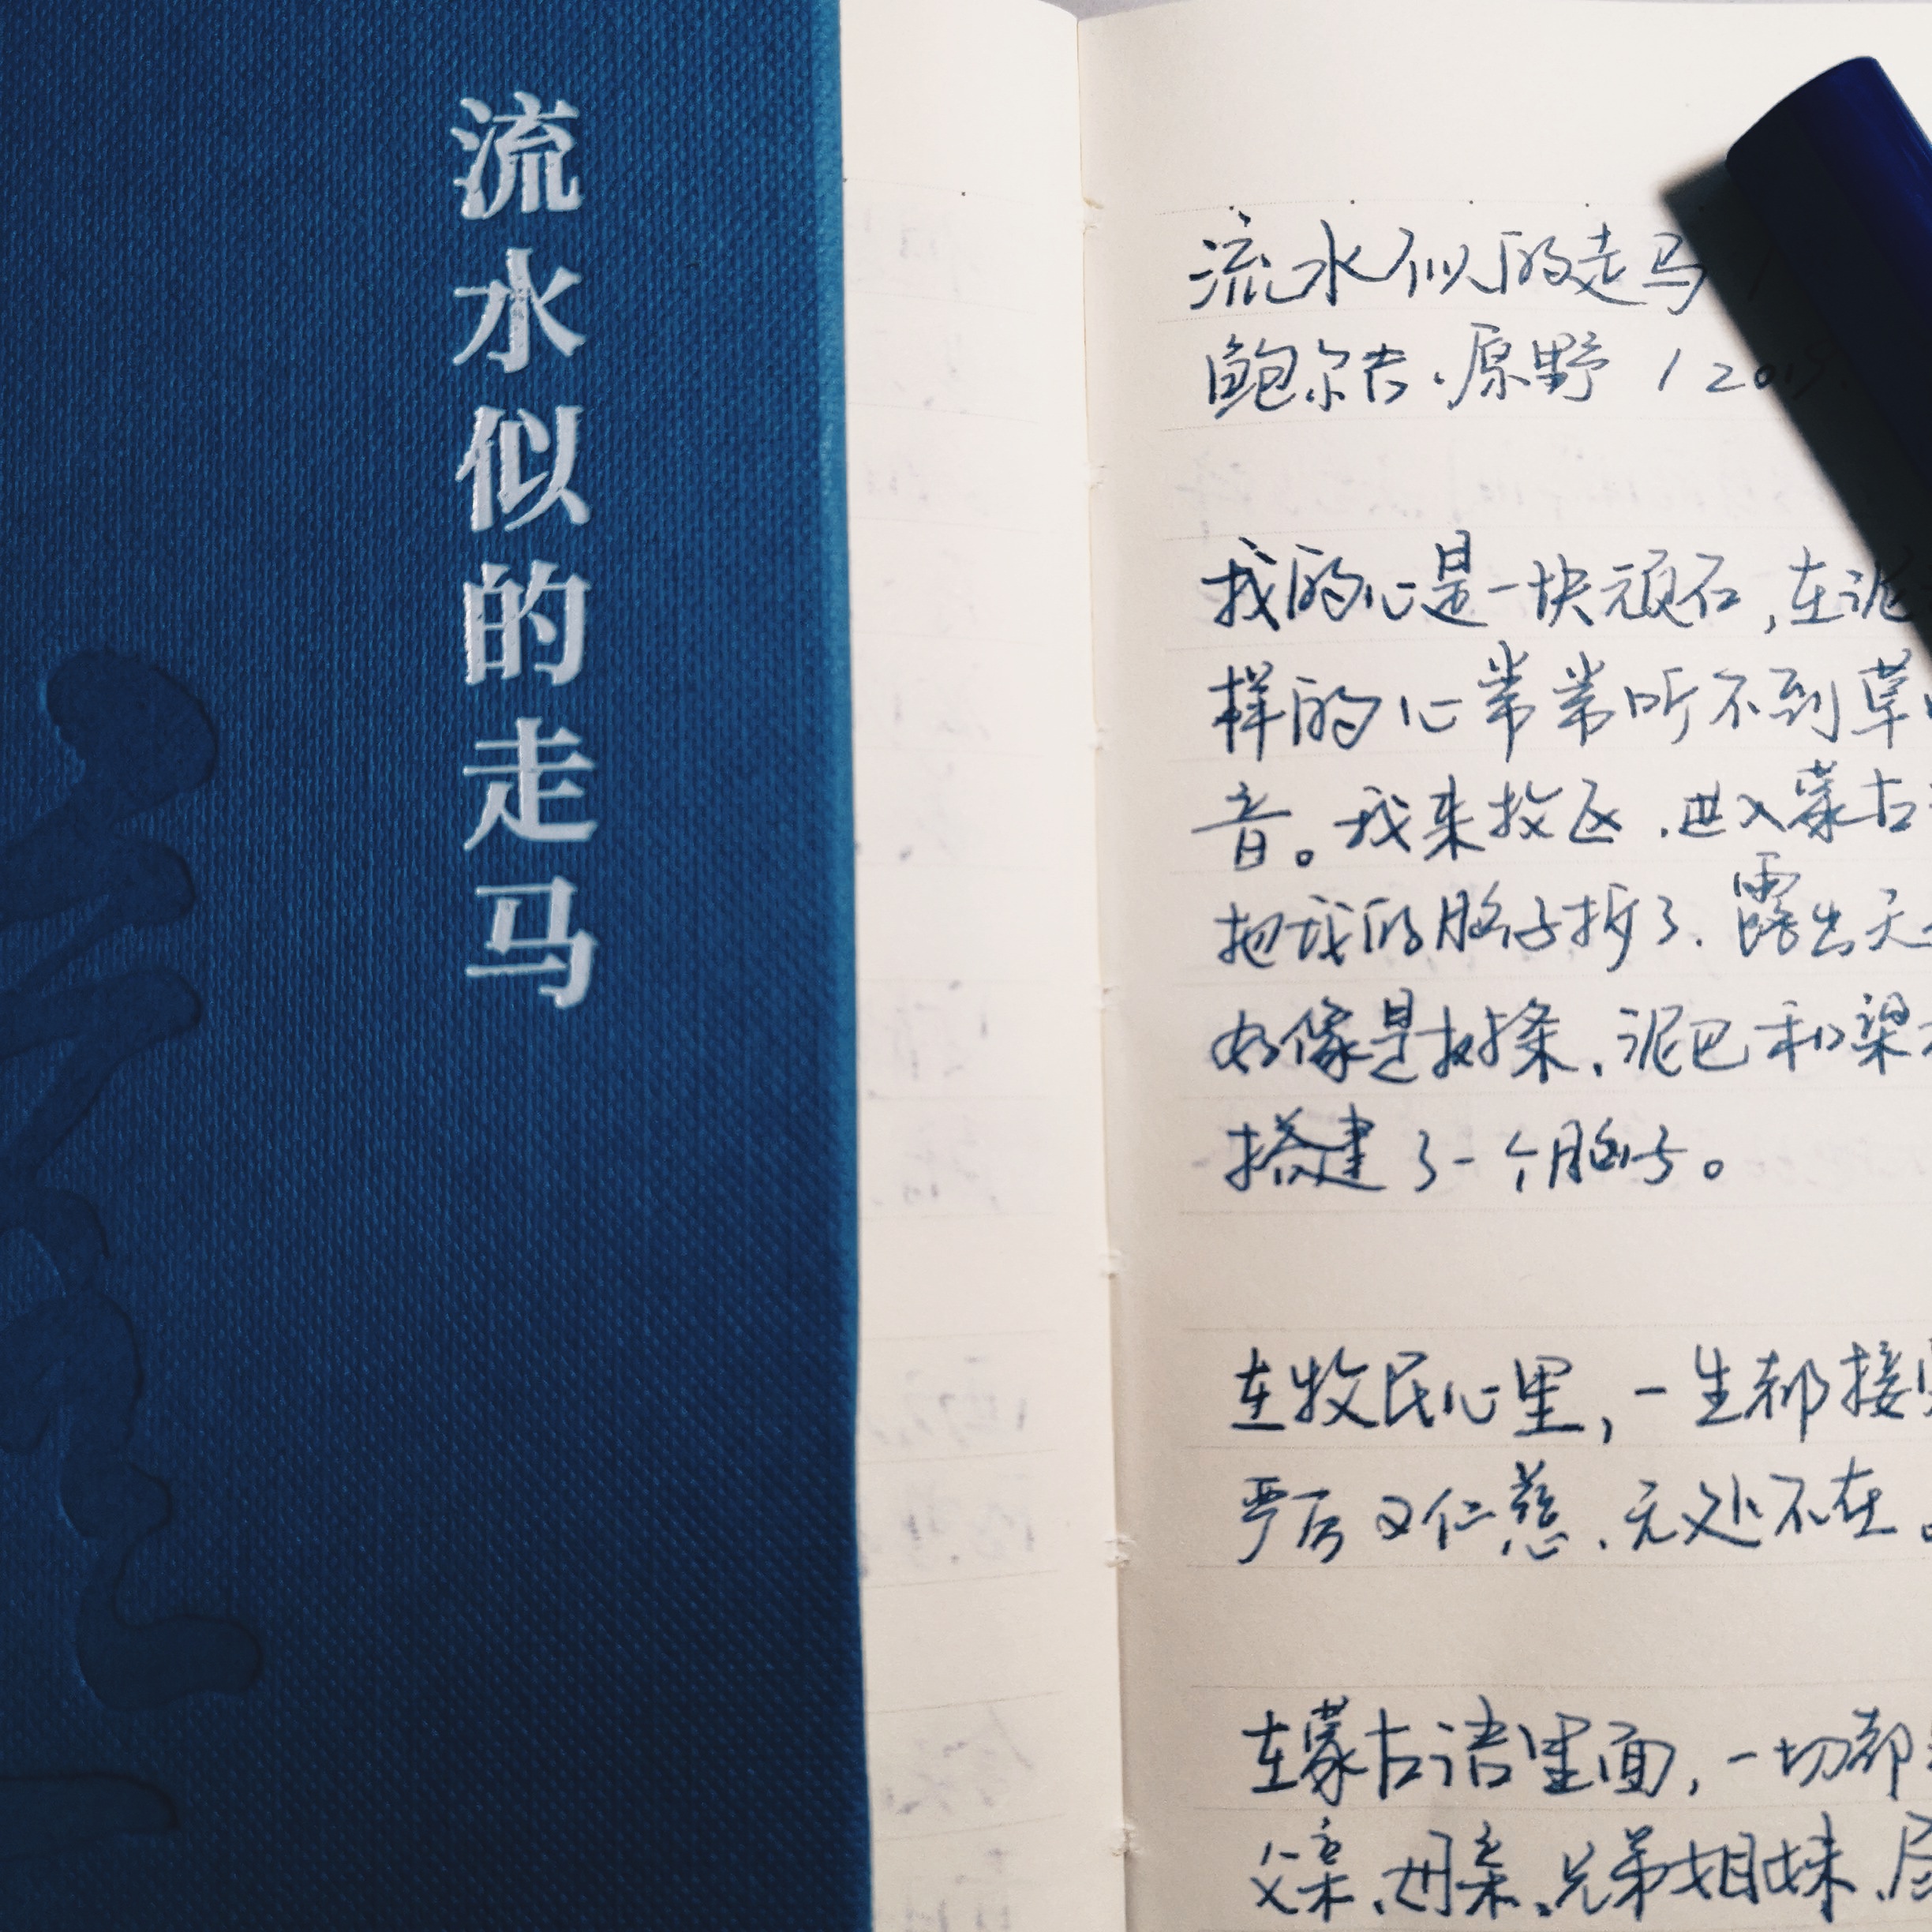 流水似的走马
流水似的走马
鲍尔吉·原野 / 201
我的心是一块顽石,在泥
样的心常常听不到草
音。我来牧区、进入蒙古
把我的脑子拆了、露出天
好像是树条、泥巴和梁
搭建了一个脑子。
在牧民心里,一生都接
严厉又仁慈、无处不在
在蒙古语里面,一切都
父亲、母亲、兄弟姐妹、